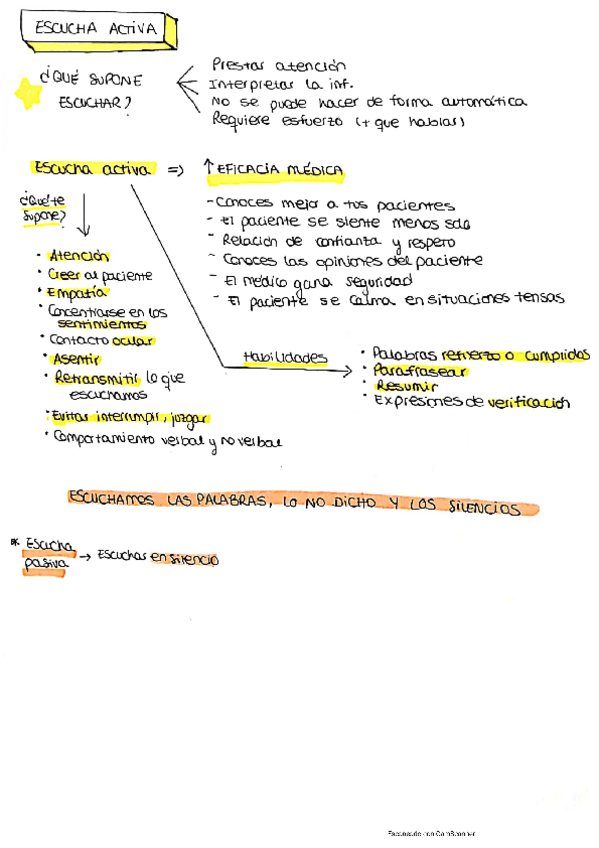 ESCUCHA ACTIVA
¿QUÉ SUPONE
ESCUCHAR?
Prestar atención
Interpretar la inf.
No se puede hacer de forma automática
Requiere esfuerzo (+ que hablar)
Escucha activa => ↑ EFICACIA MÉDICA
¿Qué te
supone?
- Conoces mejor a tus pacientes
- El paciente se siente menos solo
- Relación de confianza y respeto
- Conoces las opiniones del paciente
- El médico gana seguridad
- El paciente se calma en situaciones tensas
• Atención
• Creer al paciente
• Empatía
• Concentrarse en los
sentimientos
• Contacto ocular
• Asentir
• Retransmitir lo que
escuchamos
• Evitar interrumpir, juzgar
• Comportamiento verbal y no verbal
Habilidades
• Palabras refuerzo o cumplidos
• Parafrasear
• Resumir
• Expresiones de verificación
ESCUCHAMOS LAS PALABRAS, LO NO DICHO Y LOS SILENCIOS
* Escucha
pasiva → Escuchar en silencio
Escaneado con CamScanner